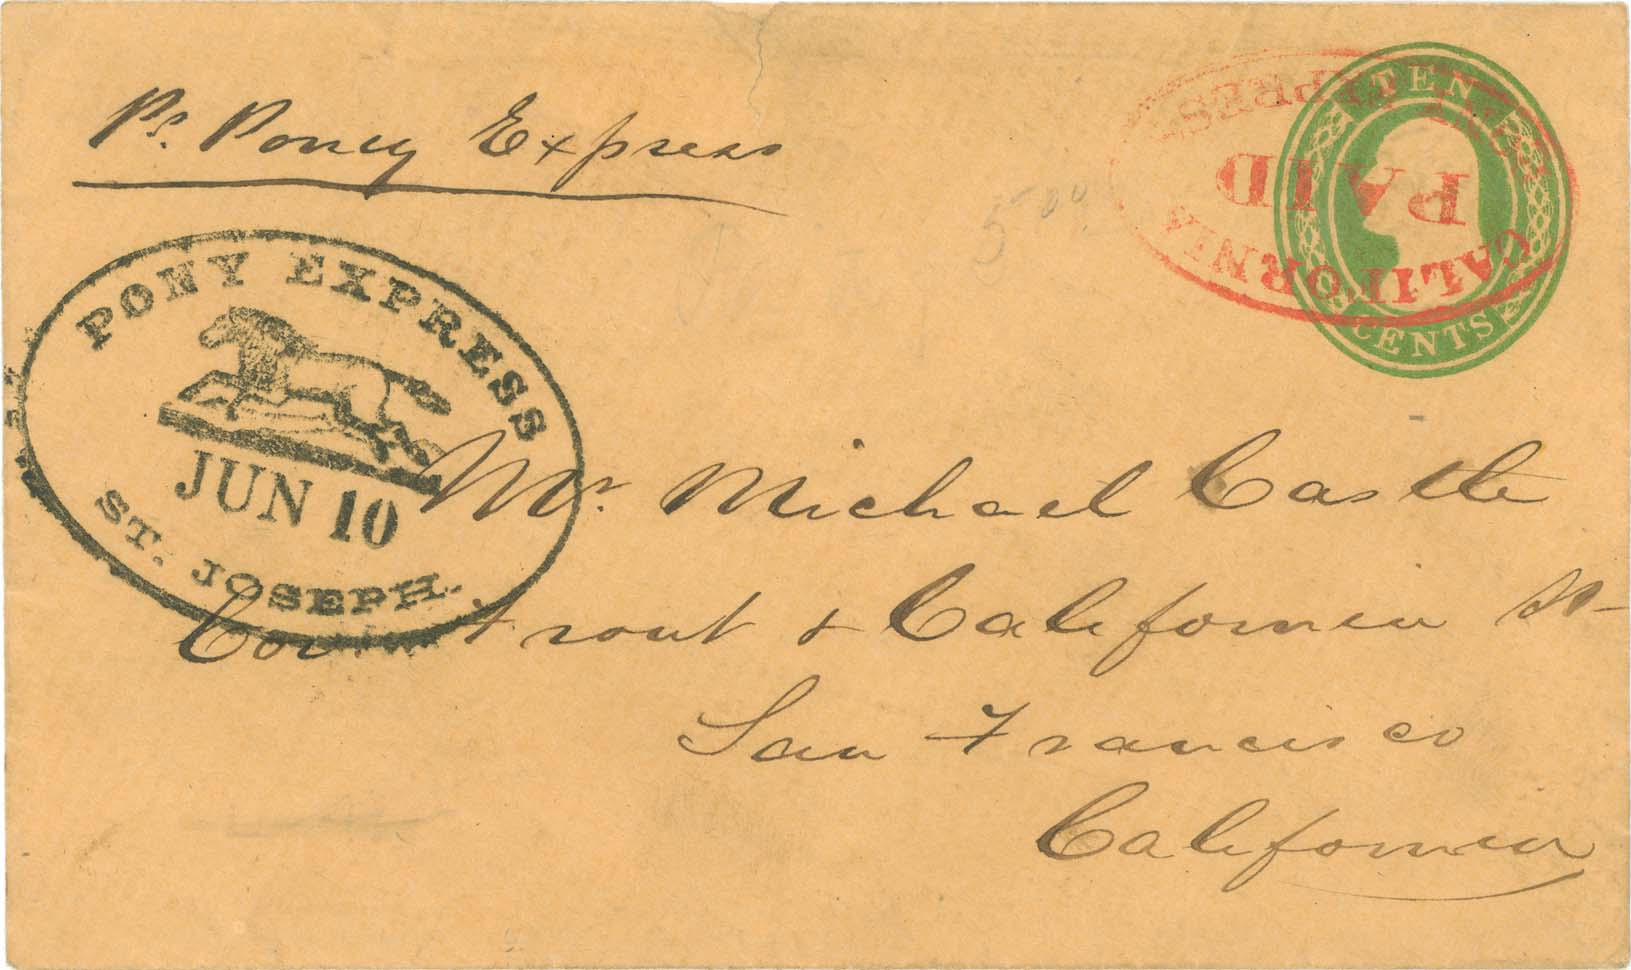 Pr. Poney Express
TEN
CENTS
CALIFORNIA
PAID
500
PONY EXPRESS
JUN 10
ST. JOSEPH.
Mr. Michael Castle
Cor. Front & California St
San Francisco
California